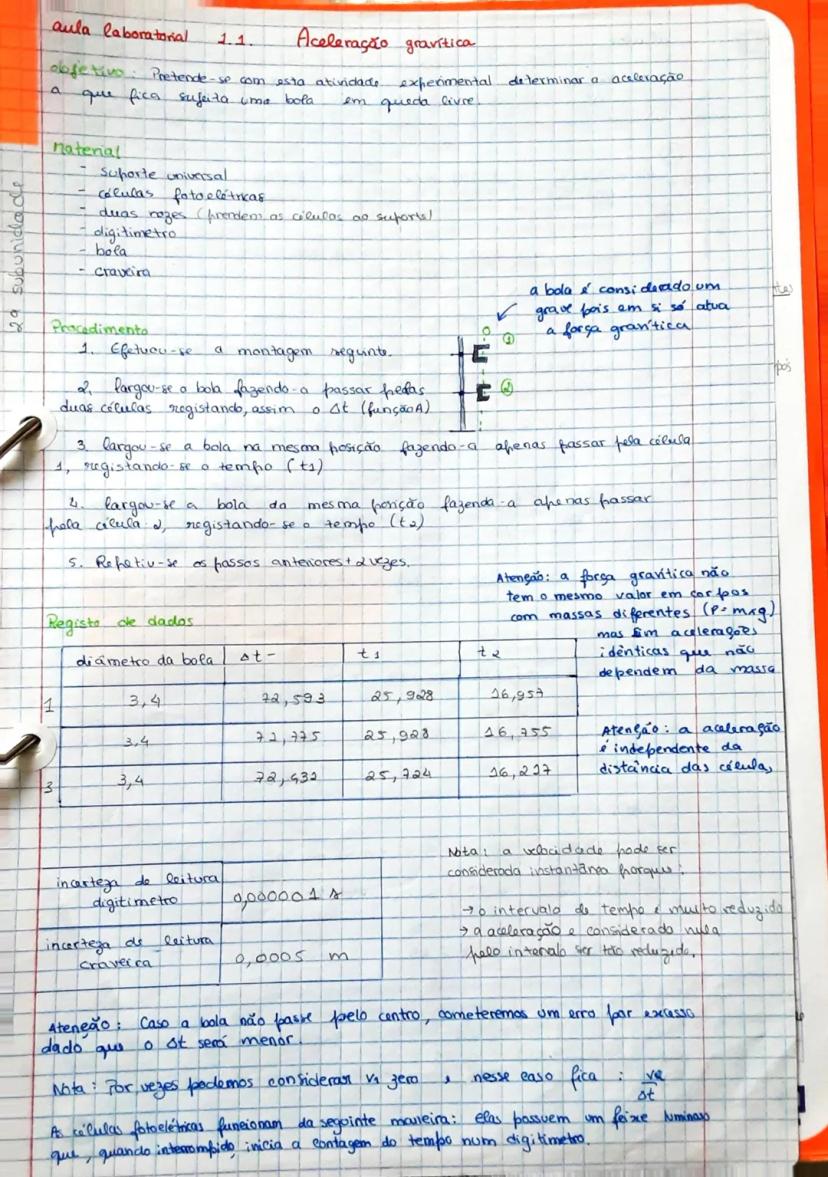 aula laboratorial 1.1. Aceleração gravítica
objetivo: Pretende-se com esta atividade experimental determinar a aceleração
a que fica sujeita uma bola em queda livre.
Material
- suporte universal
- células fotoelétricas
- duas nozes (prendem as células ao suporte)
- digitimetro
- bola
- craveira
2ª subunidade
a bola é considerado um
grave pois em si só atua
a força gravítica
Procedimento
1. Efetuou-se a montagem seguinte.
1
2
2. largou-se a bola fazendo-a passar pelas
duas células registando, assim o Δt (função A)
3. largou-se a bola na mesma posição fazendo-a apenas passar pela célula
1, registando-se o tempo (t1)
4. largou-se a bola da mesma posição fazendo-a apenas passar
pela célula 2, registando-se o tempo (t2)
5. Repetiu-se os passos anteriores + 2 vezes.
Atenção: a força gravítica não
tem o mesmo valor em corpos
com massas diferentes (P=mxg)
mas sim acelerações
idênticas que não
dependem da massa
Registo de dados
diâmetro da bola Δt- t1 t2
1 3,4 72,593 25,928 16,957
3,4 71,775 25,928 16,755
3 3,4 72,432 25,724 16,217
Atenção: a aceleração
é independente da
distância das células
Nota: a velocidade pode ser
considerada instantânea porque:
→ o intervalo de tempo é muito reduzido
→ a aceleração é considerado nula
pelo intervalo ser tão reduzido.
incerteza de leitura
digitimetro 0,000001 s
incerteza de leitura
craveira 0,0005 m
Atenção: Caso a bola não passe pelo centro, cometeremos um erro por excesso
dado que o Δt será menor.
Nota: Por vezes podemos considerar v1 zero, nesse caso fica: v2
Δt
As células fotoelétricas funcionam da seguinte maneira: elas possuem um feixe luminoso
que, quando interrompido, inicia a contagem do tempo num digitimetro.